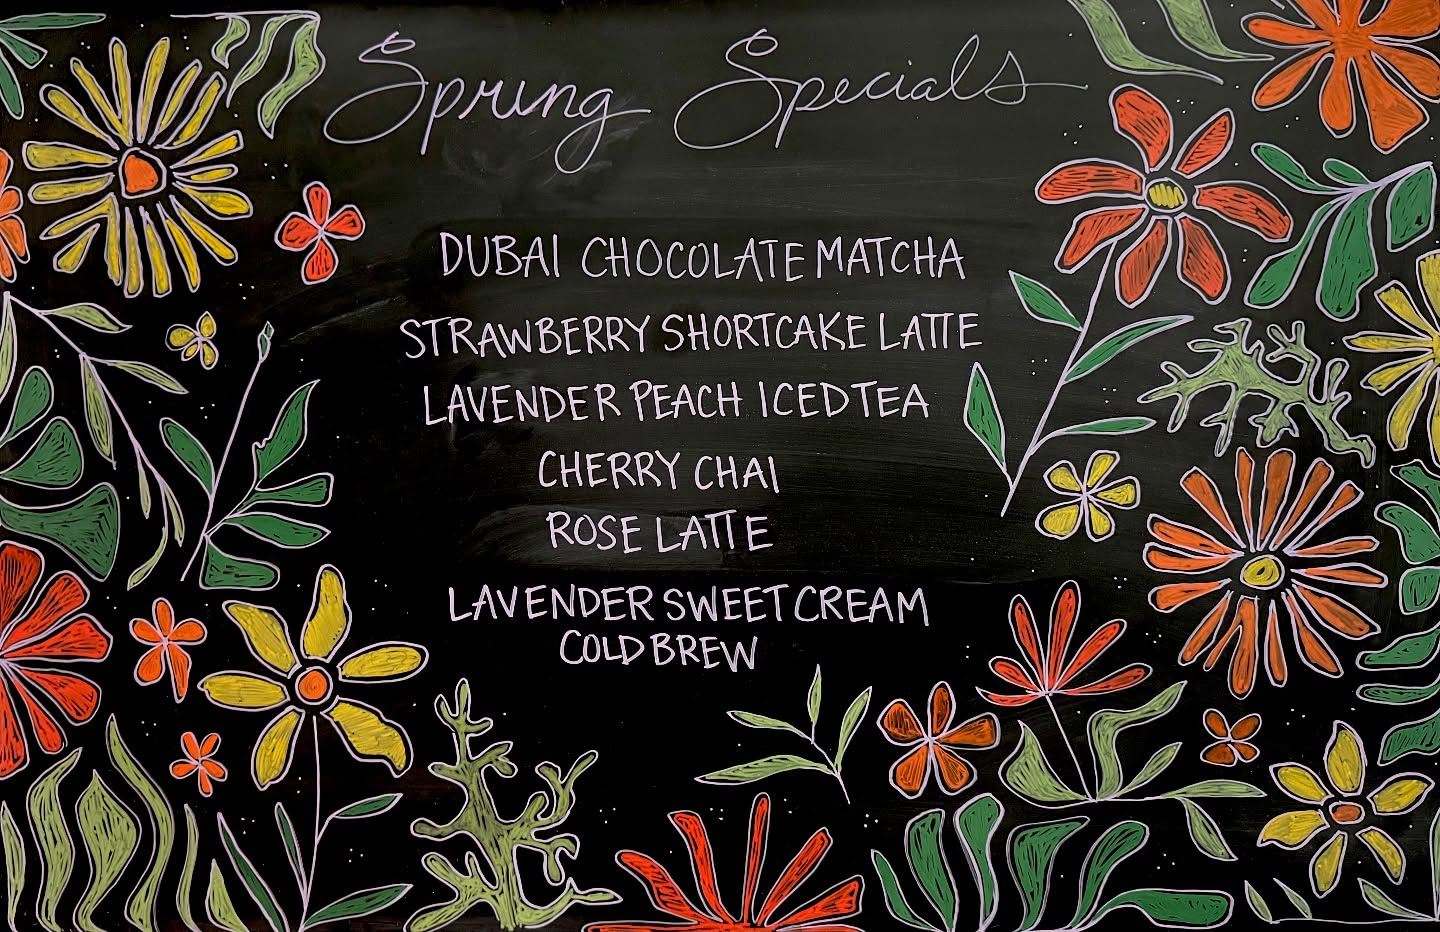 Spring Specials
DUBAI CHOCOLATE MATCHA
STRAWBERRY SHORTCAKE LATTE
LAVENDER PEACH ICED TEA
CHERRY CHAI
ROSE LATTE
LAVENDER SWEET CREAM
COLD BREW